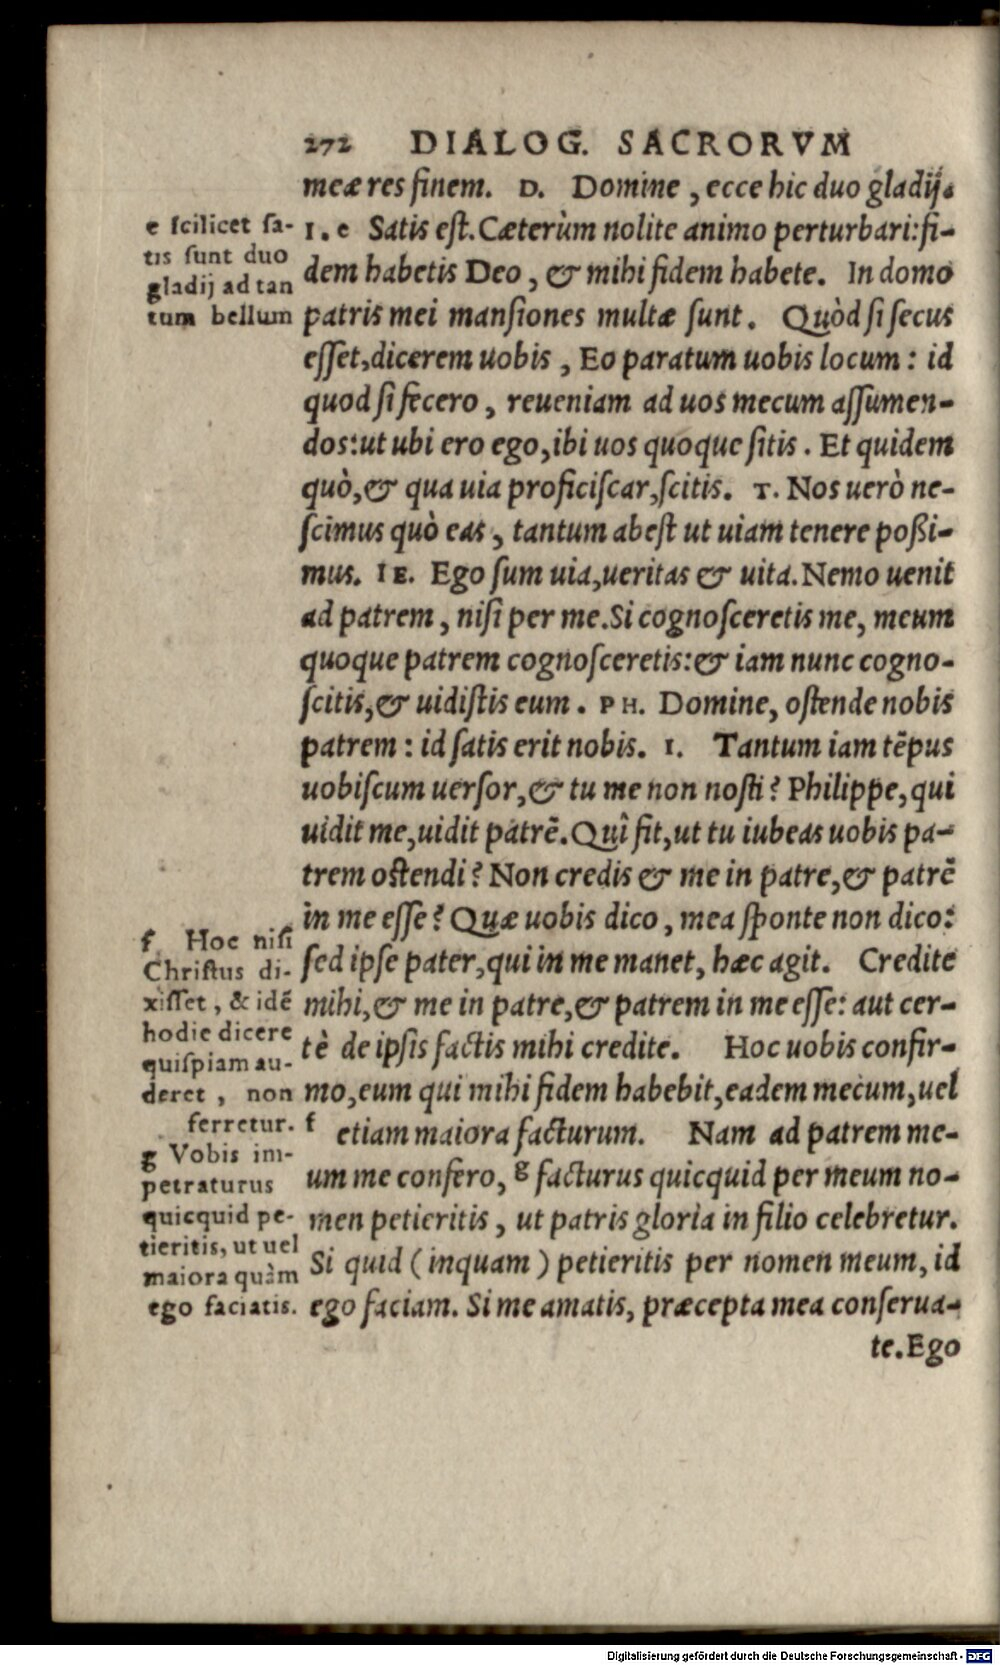 272 DIALOG. SACRORVM
meæ res finem. D. Domine, ecce hic duo gladij.
I. e Satis est. Cæterùm nolite animo perturbari: fi-
dem habetis Deo, & mihi fidem habete. In domo
patris mei mansiones multæ sunt. Quòd si secus
esset, dicerem uobis, Eo paratum uobis locum: id
quod si fecero, reueniam ad uos mecum assumen-
dos: ut ubi ero ego, ibi uos quoque sitis. Et quidem
quò, & qua uia proficiscar, scitis. T. Nos uerò ne-
scimus quò eas, tantum abest ut uiam tenere poßi-
mus. IE. Ego sum uia, ueritas & uita. Nemo uenit
ad patrem, nisi per me. Si cognosceretis me, meum
quoque patrem cognosceretis: & iam nunc cogno-
scitis, & uidistis eum. PH. Domine, ostende nobis
patrem: id satis erit nobis. I. Tantum iam tẽpus
uobiscum uersor, & tu me non nosti? Philippe, qui
uidit me, uidit patrẽ. Quî fit, ut tu iubeas uobis pa-
trem ostendi? Non credis & me in patre, & patrẽ
in me esse? Quæ uobis dico, mea sponte non dico:
sed ipse pater, qui in me manet, hæc agit. Credite
mihi, & me in patre, & patrem in me esse: aut cer-
tè de ipsis factis mihi credite. Hoc uobis confir-
mo, eum qui mihi fidem habebit, eadem mecum, uel
f etiam maiora facturum. Nam ad patrem me-
um me confero, g facturus quicquid per meum no-
men petieritis, ut patris gloria in filio celebretur.
Si quid (inquam) petieritis per nomen meum, id
ego faciam. Si me amatis, præcepta mea conserua-
te. Ego
e scilicet sa-
tis sunt duo
gladij ad tan
tum bellum
f Hoc nisi
Christus di-
xisset, & idẽ
hodie dicere
quispiam au-
deret, non
ferretur.
g Vobis im-
petraturus
quicquid pe-
tieritis, ut uel
maiora quàm
ego faciatis.
Digitalisierung gefördert durch die Deutsche Forschungsgemeinschaft - DFG